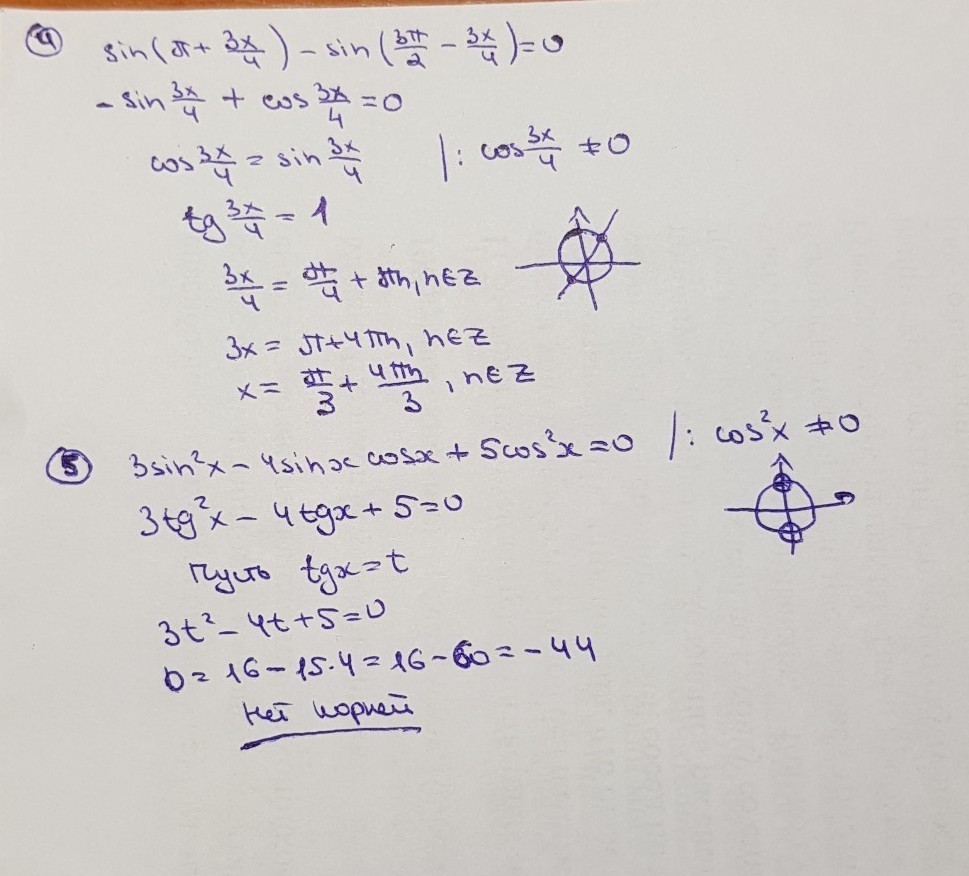 ④ sin(π + 3x/4) - sin(3π/2 - 3x/4) = 0
- sin 3x/4 + cos 3x/4 = 0
cos 3x/4 = sin 3x/4 |: cos 3x/4 ≠ 0
tg 3x/4 = 1
3x/4 = π/4 + πn, n∈Z
3x = π + 4πn, n∈Z
x = π/3 + 4πn/3, n∈Z
⑤ 3sin²x - 4sinx cosx + 5cos²x = 0 |: cos²x ≠ 0
3tg²x - 4tgx + 5 = 0
Пусть tgx = t
3t² - 4t + 5 = 0
D = 16 - 15·4 = 16 - 60 = -44
нет корней